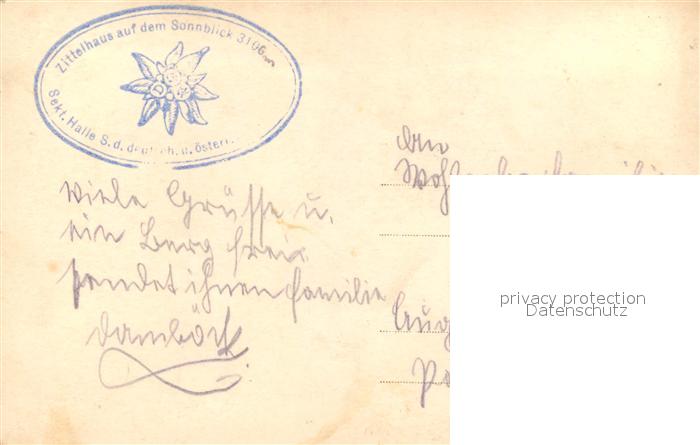 Zittelhaus auf dem Sonnblick 3106m
Sekt. Halle S. d. deutsch. u. österr.
Viele Grüsse u.
ein Berg frei
sendet ihnen Familie
Damböck
An
privacy protection
Datenschutz